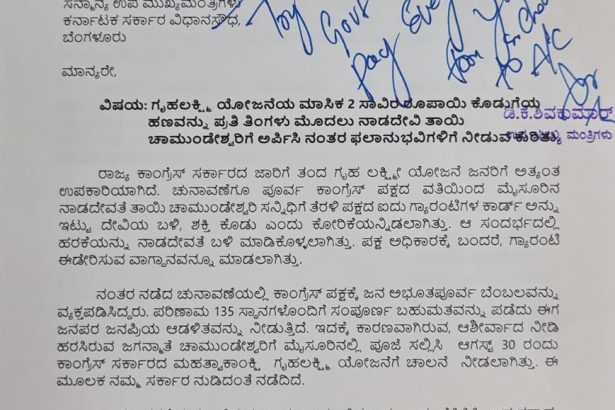 ಸನ್ಮಾನ್ಯ ಉಪ ಮುಖ್ಯಮಂತ್ರಿಗಳು
ಕರ್ನಾಟಕ ಸರ್ಕಾರ ವಿಧಾನಸೌಧ,
ಬೆಂಗಳೂರು
Try Govt
pay Every
to A/C
ಮಾನ್ಯರೇ,
ವಿಷಯ: ಗೃಹಲಕ್ಷ್ಮಿ ಯೋಜನೆಯ ಮಾಸಿಕ 2 ಸಾವಿರ ರೂಪಾಯಿ ಕೊಡುಗೆಯ
ಡಿ.ಕೆ.ಶಿವಕುಮಾರ್
ಹಣವನ್ನು ಪ್ರತಿ ತಿಂಗಳು ಮೊದಲು ನಾಡದೇವಿ ತಾಯಿ
ಉಪ ಮುಖ್ಯ ಮಂತ್ರಿಗಳು
ಚಾಮುಂಡೇಶ್ವರಿಗೆ ಅರ್ಪಿಸಿ ನಂತರ ಫಲಾನುಭವಿಗಳಿಗೆ ನೀಡುವ ಕುರಿತು.
ರಾಜ್ಯ ಕಾಂಗ್ರೆಸ್ ಸರ್ಕಾರದ ಜಾರಿಗೆ ತಂದ ಗೃಹ ಲಕ್ಷ್ಮೀ ಯೋಜನೆ ಜನರಿಗೆ ಅತ್ಯಂತ
ಉಪಕಾರಿಯಾಗಿದೆ. ಚುನಾವಣೆಗೂ ಪೂರ್ವ ಕಾಂಗ್ರೆಸ್ ಪಕ್ಷದ ವತಿಯಿಂದ ಮೈಸೂರಿನ
ನಾಡದೇವತೆ ತಾಯಿ ಚಾಮುಂಡೇಶ್ವರಿ ಸನ್ನಿಧಿಗೆ ತೆರಳಿ ಪಕ್ಷದ ಐದು ಗ್ಯಾರಂಟಿಗಳ ಕಾರ್ಡ್ ಅನ್ನು
ಇಟ್ಟು ದೇವಿಯ ಬಳಿ, ಶಕ್ತಿ ಕೊಡು ಎಂದು ಕೋರಿಕೆಯನ್ನಿಡಲಾಗಿತ್ತು. ಆ ಸಂದರ್ಭದಲ್ಲಿ
ಹರಕೆಯನ್ನು ನಾಡದೇವತೆ ಬಳಿ ಮಾಡಿಕೊಳ್ಳಲಾಗಿತ್ತು. ಪಕ್ಷ ಅಧಿಕಾರಕ್ಕೆ ಬಂದರೆ, ಗ್ಯಾರಂಟಿ
ಈಡೇರಿಸುವ ವಾಗ್ದಾನವನ್ನೂ ಮಾಡಲಾಗಿತ್ತು.
ನಂತರ ನಡೆದ ಚುನಾವಣೆಯಲ್ಲಿ ಕಾಂಗ್ರೆಸ್ ಪಕ್ಷಕ್ಕೆ ಜನ ಅಭೂತಪೂರ್ವ ಬೆಂಬಲವನ್ನು
ವ್ಯಕ್ತಪಡಿಸಿದ್ದರು. ಪರಿಣಾಮ 135 ಸ್ಥಾನಗಳೊಂದಿಗೆ ಸಂಪೂರ್ಣ ಬಹುಮತವನ್ನು ಪಡೆದು ಈಗ
ಜನಪರ ಜನಪ್ರಿಯ ಆಡಳಿತವನ್ನು ನೀಡುತ್ತಿದೆ. ಇದಕ್ಕೆ ಕಾರಣವಾಗಿರುವ, ಆಶೀರ್ವಾದ ನೀಡಿ
ಹರಸಿರುವ ಜಗನ್ಮಾತೆ ಚಾಮುಂಡೇಶ್ವರಿಗೆ ಮೈಸೂರಿನಲ್ಲಿ ಪೂಜೆ ಸಲ್ಲಿಸಿ ಆಗಸ್ಟ್ 30 ರಂದು
ಕಾಂಗ್ರೆಸ್ ಸರ್ಕಾರದ ಮಹತ್ವಾಕಾಂಕ್ಷಿ ಗೃಹಲಕ್ಷ್ಮಿ ಯೋಜನೆಗೆ ಚಾಲನೆ ನೀಡಲಾಗಿತ್ತು. ಈ
ಮೂಲಕ ನಮ್ಮ ಸರ್ಕಾರ ನುಡಿದಂತೆ ನಡೆದಿದೆ.